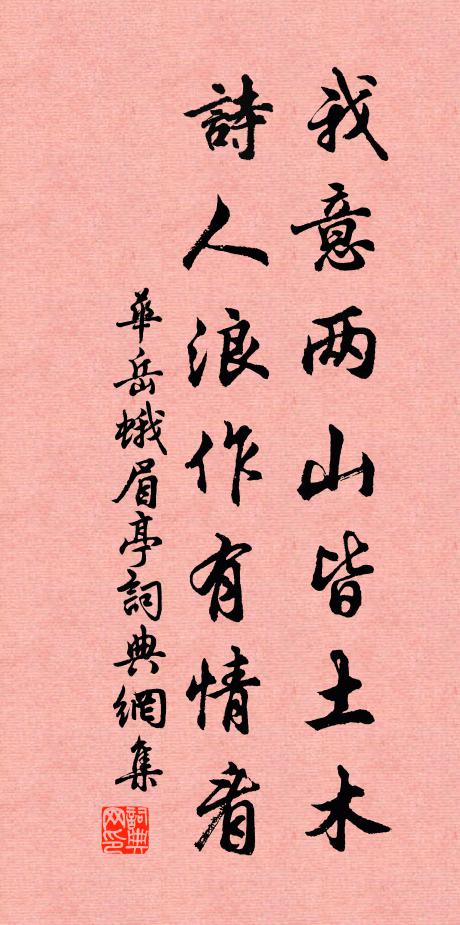 我意两山皆土木
詩人浪作有情看
華岳蛾眉亭詞典網集
詞典
网印